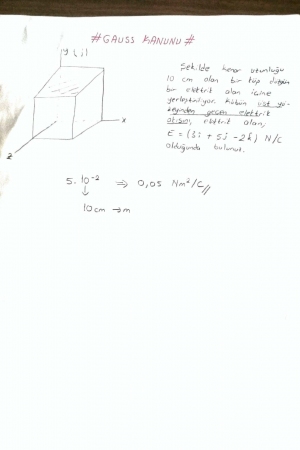 #GAUSS KANUNU#
y (j)
x
z
Şekilde kenar uzunluğu
10 cm olan bir küp düzgün
bir elektrik alan içine
yerleştiriliyor. Kübün üst yü-
zeyinden geçen elektrik
akısını, elektrik alan,
E = (3i + 5j - 2k) N/C
olduğunda bulunuz.
5. 10⁻² ⇒ 0,05 Nm²/C//
↓
10cm → m